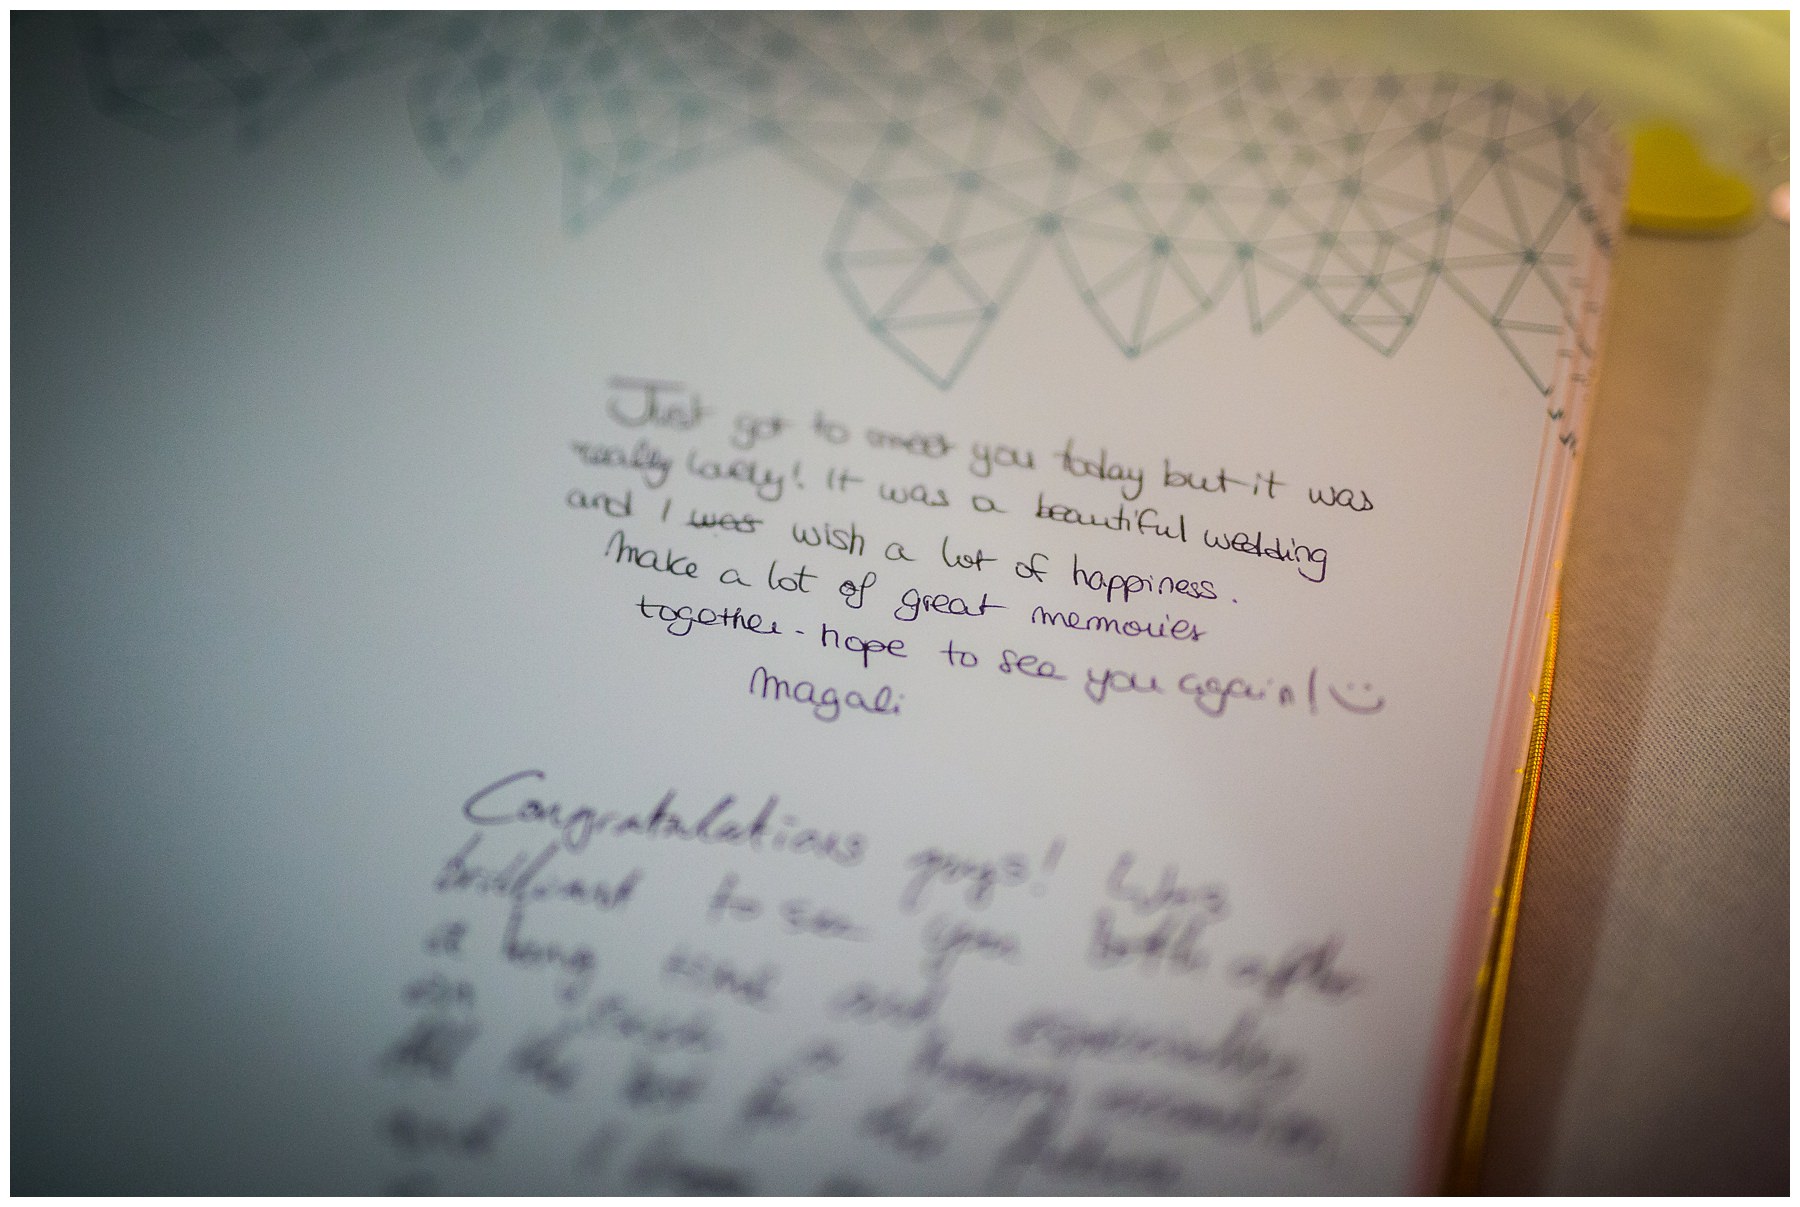 Just got to meet you today but it was
really lovely! It was a beautiful wedding
and I was wish a lot of happiness.
Make a lot of great memories
together - hope to see you again! :)
Magali
Congratulations guys! Was
brilliant to see you both after
a long time and especially
on such a happy occasion.
All the best for the future
and I hope